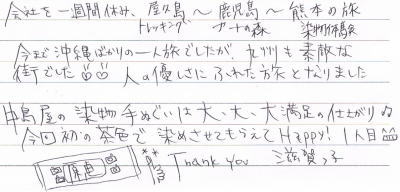 会社を一週間休み、屋久島～鹿児島～熊本の旅
トレッキング アートの森 染物体験
今まで沖縄ばかりの一人旅でしたが、九州も素敵な
街でした 人の優しさにふれた旅となりました
中島屋の染物手ぬぐいは大、大、大満足の仕上がり
今回初の茶色で染めさせてもらえてHappy! 1人目
Thank you 滋賀っ子